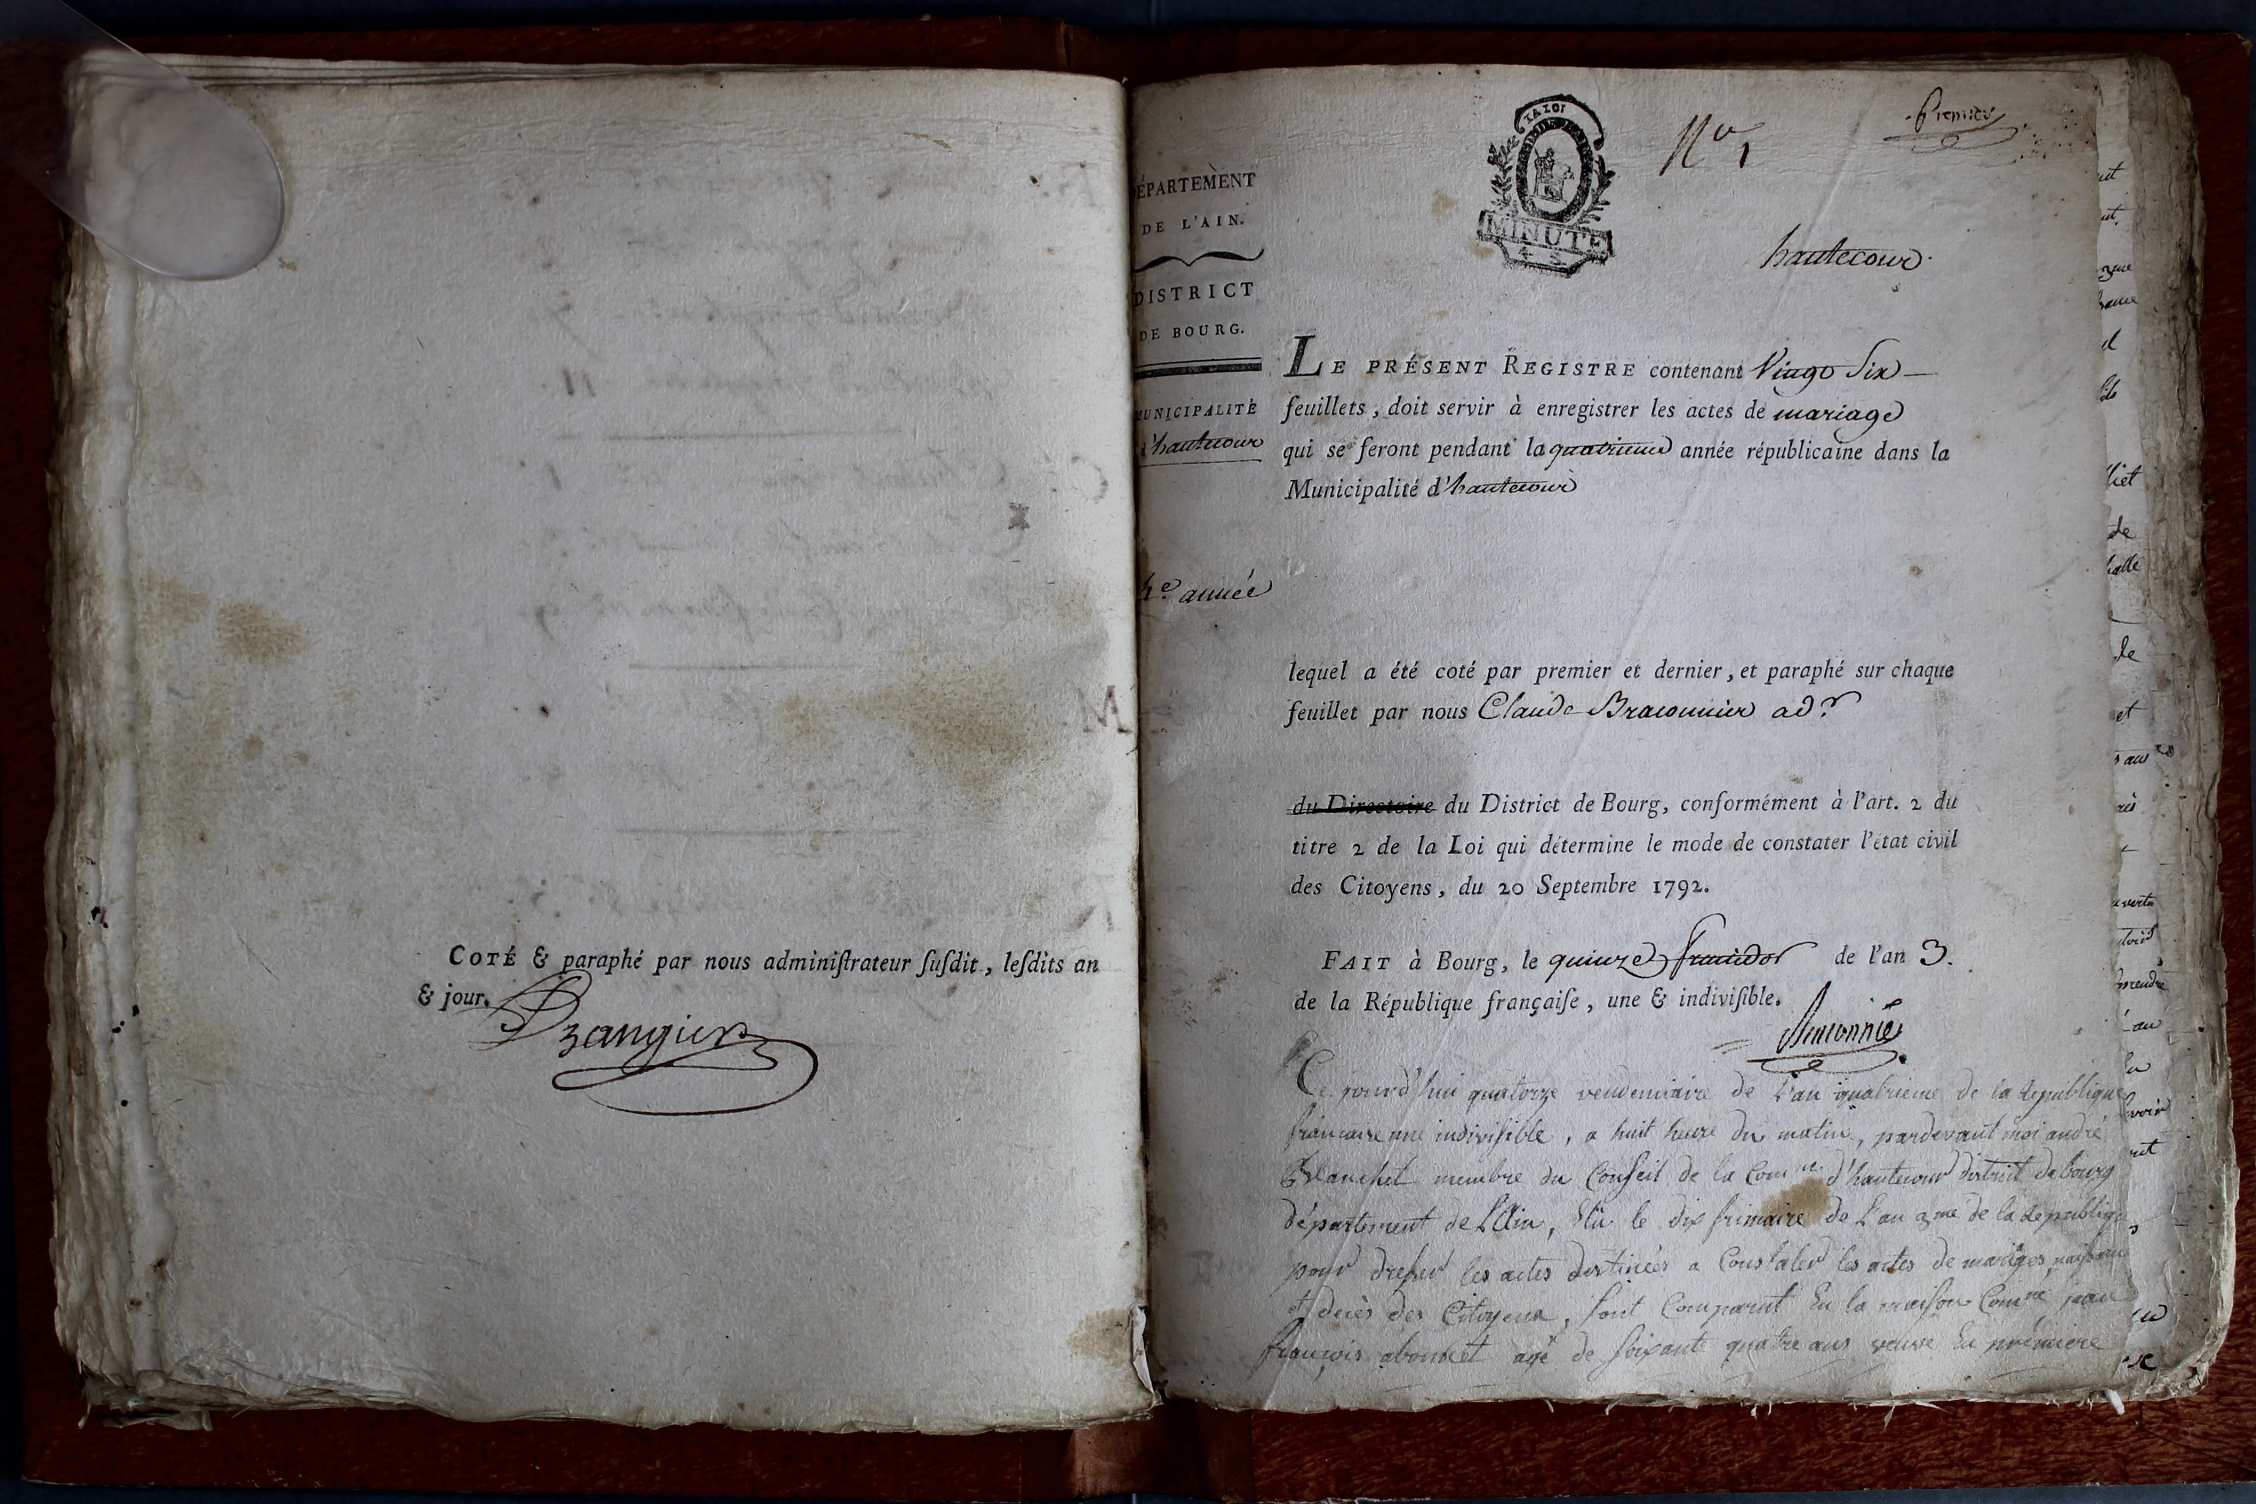 COTÉ & paraphé par nous adminiſtrateur ſuſdit, leſdits an
& jour.
LA LOI
MINUTE
4 S
Nº 1
Premier
hautecour
DÉPARTEMENT
DE L'AIN.
DISTRICT
DE BOURG.
MUNICIPALITÉ
d'hautecour
4e année
LE PRÉSENT REGISTRE contenant Vingt Six
feuillets, doit servir à enregistrer les actes de mariage
qui se feront pendant la quatrieme année républicaine dans la
Municipalité d'hautecour
lequel a été coté par premier et dernier, et paraphé sur chaque
feuillet par nous Claude Braconnier adr
du Directoire du District de Bourg, conformément à l'art. 2 du
titre 2 de la Loi qui détermine le mode de constater l'état civil
des Citoyens, du 20 Septembre 1792.
FAIT à Bourg, le quinze fructidor de l'an 3.
de la République françaiſe, une & indiviſible.
Ce jourd'hui quatorze vendemiaire de l'an quatrieme de la republique
francaise une indivisible, a huit heure du matin, pardevant moi andré
Blanchet membre du Conseil de la Comne d'hautecour district de bourg
département de L'Ain, Elu le dix frimaire de l'an 3me de la republique
pour dresser les actes destinées a Constater les actes de mariges
et decès des Citoyens, sont Comparut En la maison Comne jean
françois abonnet agé de soixante quatre ans veuve En premiere